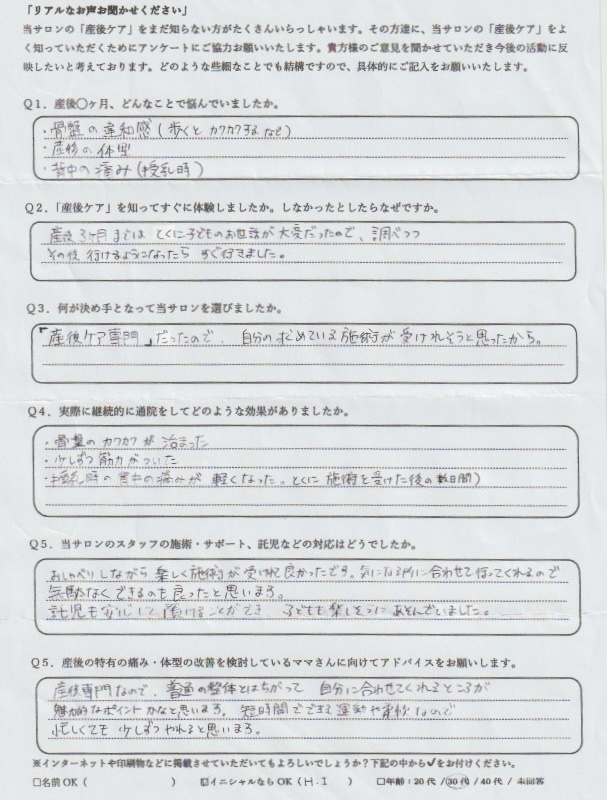 「リアルなお声お聞かせください」
当サロンの「産後ケア」をまだ知らない方がたくさんいらっしゃいます。その方達に、当サロンの「産後ケア」をよ
く知っていただくためにアンケートにご協力お願いいたします。貴方様のご意見を聞かせていただき今後の活動に反
映したいと考えております。どのような些細なことでも結構ですので、具体的にご記入をお願いいたします。
Q1．産後〇ヶ月、どんなことで悩んでいましたか。
・骨盤の違和感(歩くと カクカクする など)
・産後の体型
・背中の痛み(授乳時)
Q2．「産後ケア」を知ってすぐに体験しましたか。しなかったとしたらなぜですか。
産後3ヶ月までは とくに子どものお世話が大変だったので、調べつつ
その後 行けるようになったら すぐ行きました。
Q3．何が決め手となって当サロンを選びましたか。
「産後ケア専門」だったので、自分の求めている施術が受けれそうと思ったから。
Q4．実際に継続的に通院をしてどのような効果がありましたか。
・骨盤のカクカクが 治まった
・少しずつ筋力がついた
・授乳時の背中の痛みが 軽くなった。とくに 施術を受けた後の数日間)
Q5．当サロンのスタッフの施術・サポート、託児などの対応はどうでしたか。
おしゃべりしながら 楽しく施術が受けれて良かったです。気になる所に合わせて行ってくれるので
無駄なくできるのも良ったと思います。
託児も安心して預けることができ、子どもも楽しそうにあそんでいました。
Q5．産後の特有の痛み・体型の改善を検討しているママさんに向けてアドバイスをお願いします。
産後専門なので、普通の整体とはちがって 自分に合わせてくれるところが
魅力的なポイントかなと思います。短時間でできる運動や柔軟なので
忙しくても 少しずつやれると思います。
※インターネットや印刷物などに掲載させていただいてもよろしいでしょうか？下記の中から✓をお付けください。
□名前OK（　　　　　　　） ☑イニシャルならOK（H.I　） □年齢：20代 /30代 /40代 / 未回答